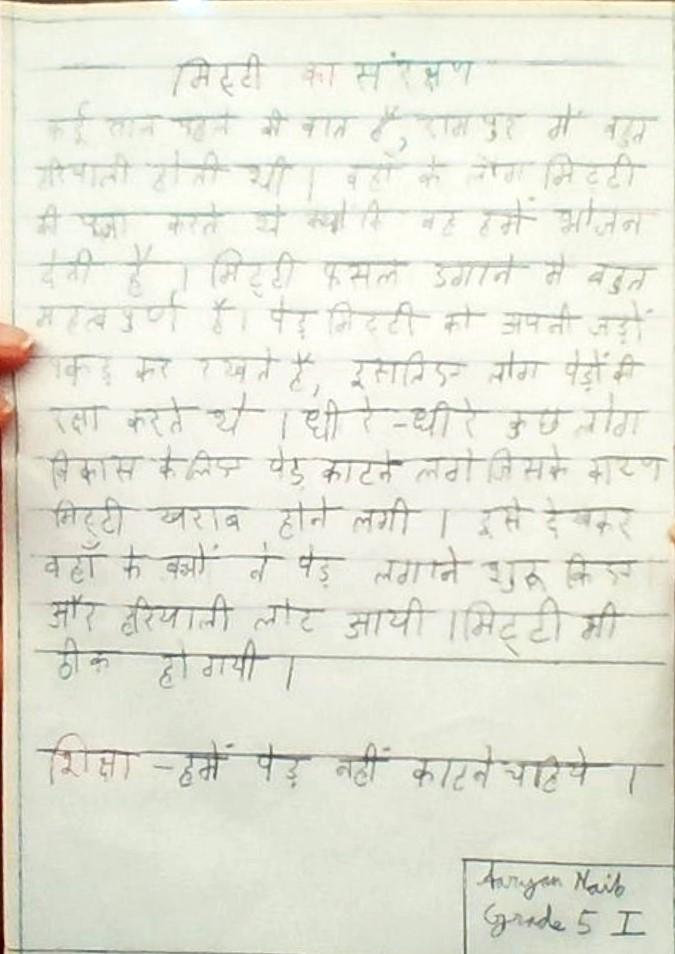 मिट्टी का संरक्षण
कई साल पहले की बात है, रामपुर में बहुत
हरियाली होती थी । वहाँ के लोग मिट्टी
की पूजा करते थे क्योंकि वह हमें भोजन
देती है । मिट्टी फसल उगाने में बहुत
महत्वपुर्ण है। पेड़ मिट्टी को अपनी जड़ों
पकड़ कर रखते है, इसलिए लोग पेड़ों की
रक्षा करते थे । धीरे-धीरे कुछ लोग
विकास के लिए पेड़ काटने लगे जिसके कारण
मिट्टी खराब होने लगी । इसे देखकर
वहाँ के बच्चों ने पेड़ लगाने शुरू किए
और हरियाली लौट आयी । मिट्टी भी
ठीक हो गयी ।
शिक्षा - हमें पेड़ नहीं काटने चाहिये ।
Aaryan Naib
Grade 5 I